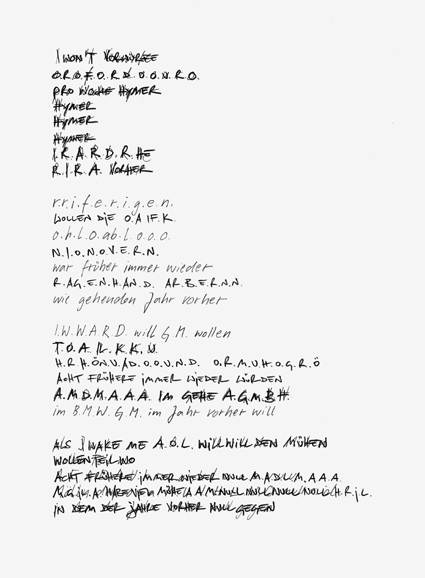 I WON'T
O.R.O.F.O.R.D. O.O.N.R.O.
PRO WOCHE HYMER
HYMER
HYMER
HYMER
I.R.A.R.D.R. HE
R.I.R.A. VORHER
r.r.i.f.e.r.i.g.e.n.
WOLLEN DIE O.A IF.K.
o.h.l.o.ab.l.o.o.o.
N.I.O.N.O.V.E.R.N.
war früher immer wieder
R.AG.E.N.HAN.D. AR.B.E.R.N.N.
wie gehenden Jahr vorher
I.W.W.A.R.D. will G.M. wollen
T.O.A. IL.K.K.U.
H.R.H.ÖN.U.AD.O.O.U.N.D. O.R.M.U.H.O.G.R.Ö
ACHT FRÜHERE IMMER WIEDER WÜRDEN
A.M.D.M.A.A.A. IM GEHE A.G.M.B.H.
im B.M.W.G.M. im Jahr vorher will
ALS I WAKE ME A.O.L. WILL WILL DEN MÜHEN
WOLLEN TEIL WO
ACHT FRÜHERE IMMER WIEDER NULL M.A.D.L.M.A.A.A.
IN DEM DER JAHRE VORHER NULL GEGEN